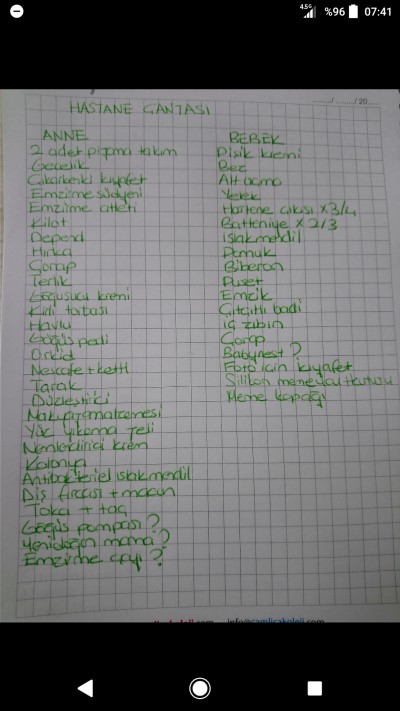 4.5G %96 07:41
.../.../20...
HASTANE ÇANTASI
ANNE
2 adet pijama takım
Gecelik
Çıkarkenki kıyafet
Emzirme südyeni
Emzirme atleti
Kilot
Depend
Hırka
Çorap
Terlik
Göğüsucu kremi
Kirli torbası
Havlu
Göğüs pedi
Orkid
Nescafe + kettl
Tarak
Düzleştirici
Makyaj malzemesi
Yüz yıkama jeli
Nemlendirici krem
Kolonya
Antibakteriel ıslak mendil
Diş fırcası + macun
Toka + taç
Göğüs pompası?
Yenidoğan mama?
Emzirme çayı?
BEBEK
Pişik kremi
Bez
Alt açma
Yelek
Hastane çıkışı x3/4
Battaniye x 2/3
Islakmendil
Pamuk
Biberon
Puset
Emzik
Çıtçıtlı badi
iç zıbın
Çorap
Babynest?
Foto için kıyafet
Silikon meme ucu + kutusu
Meme kapağı
info@camlicakoleji.com